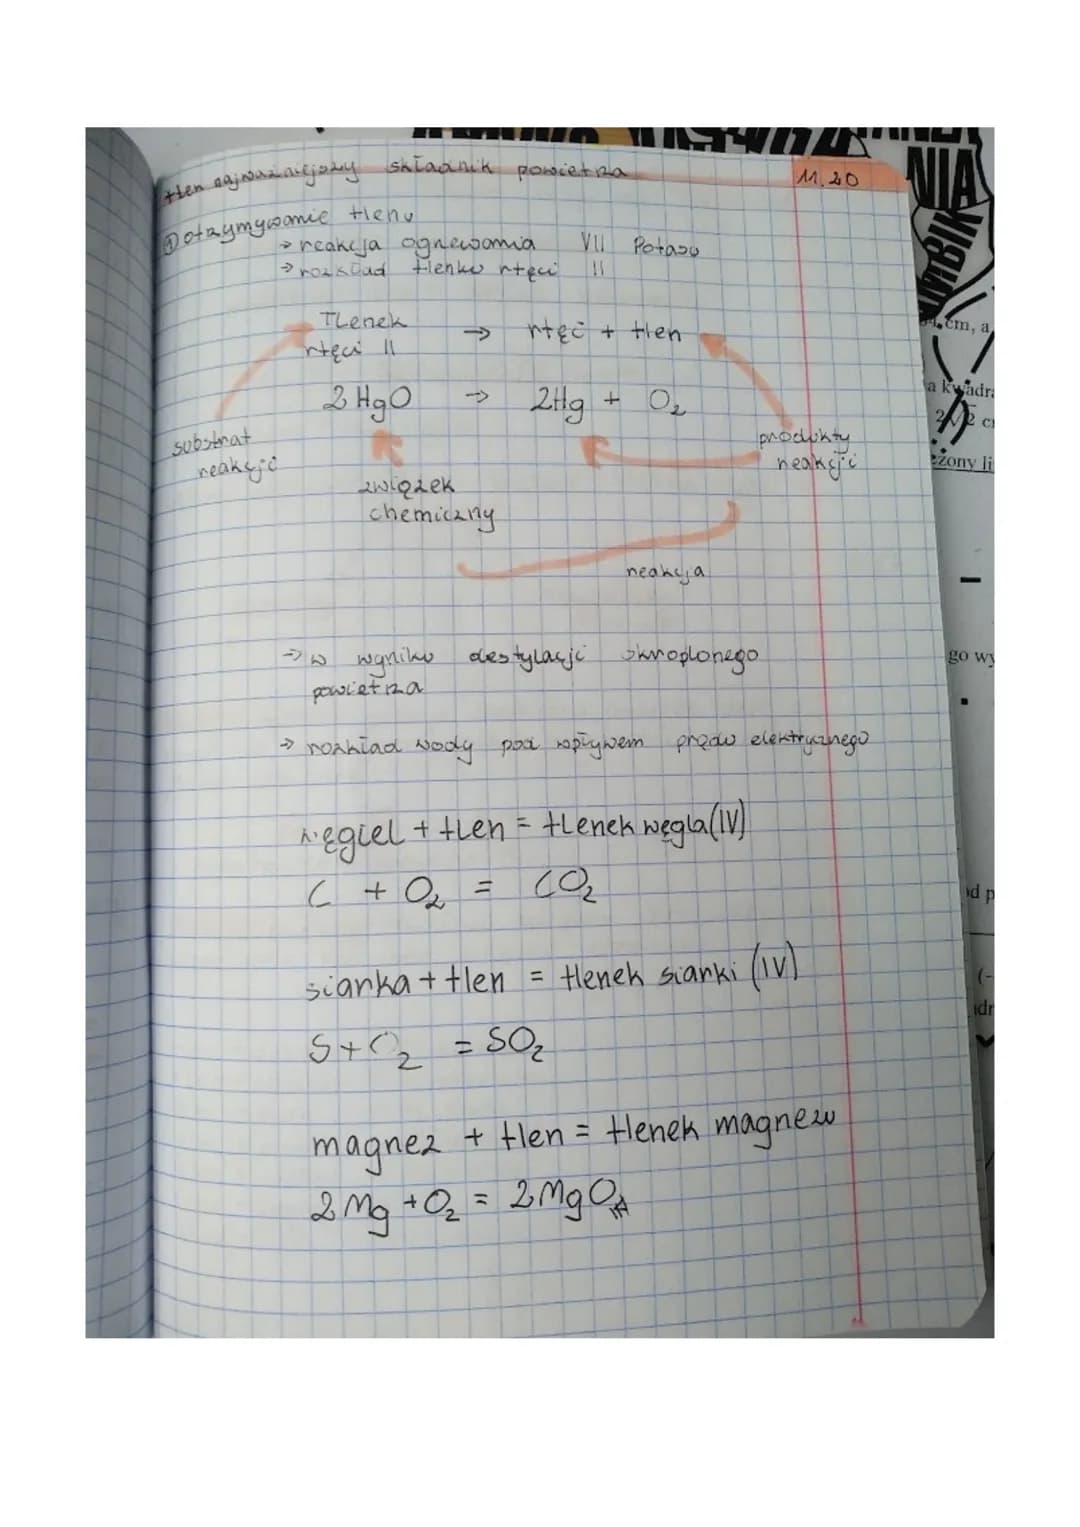 tlen najważniejszy składnik powietrza 11.20
① otrzymywanie tlenu
→ reakcja ogrzewania VII Potasu
→ rozkład tlenku rtęci II
Tlenek → rtęć + tlen
rtęci II
2 HgO → 2Hg + O₂
substrat produkty
reakcji reakcji
związek
chemiczny
reakcja
→ w wyniku destylacji skroplonego
powietrza
→ rozkład wody pod wpływem prądu elektrycznego
węgiel + tlen = tlenek węgla (IV)
C + O₂ = CO₂
siarka + tlen = tlenek siarki (IV)
S + O₂ = SO₂
magnez + tlen = tlenek magnezu
2 Mg + O₂ = 2 MgO
NIA
cm, a
a kwadra
2√2
eżony li
go wy